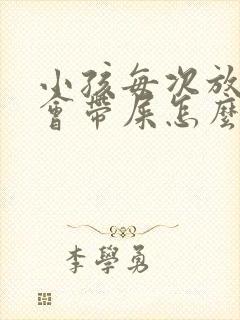 小孩每次放
會帶屎怎麼
李學勇